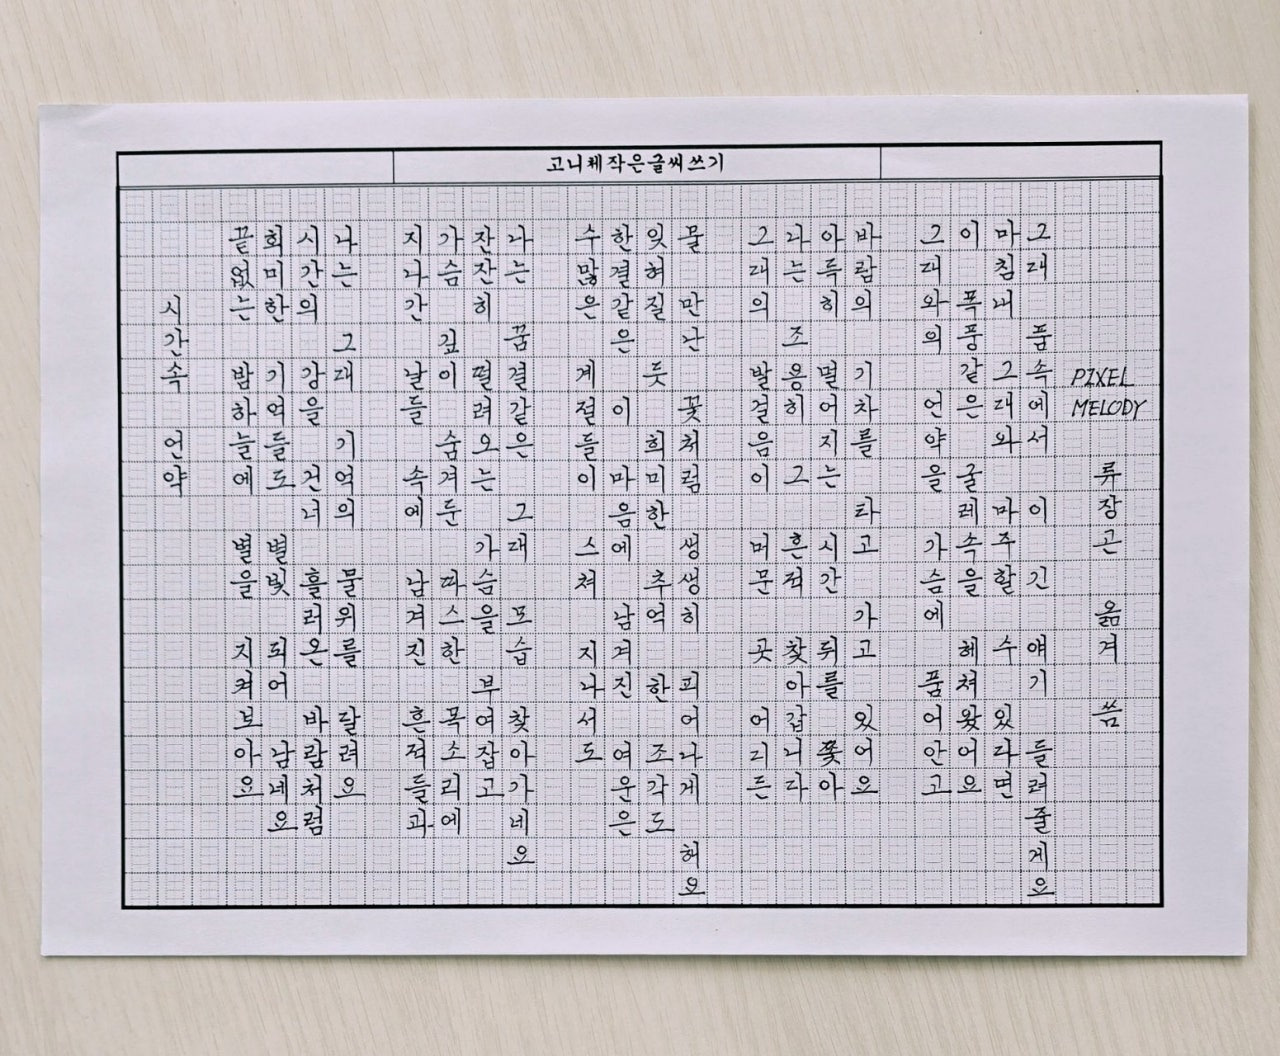 고니체작은글씨쓰기
시간속 언약
끝없는 밤하늘에 별을 지켜보아요
희미한 기억들도 별빛 되어 남네요
시간의 강을 건너 흘러온 바람처럼
나는 그대 기억의 물위를 달려요
지나간 날들 속에 남겨진 흔적들과
가슴 깊이 숨겨둔 따스한 목소리에
잔잔히 떨려오는 가슴을 부여잡고
나는 꿈결같은 그대 모습 찾아가네요
수많은 계절들이 스쳐 지나서도
한결같은 이 마음에 남겨진 여운은
잊혀질 듯 희미한 추억 한 조각도
물 만난 꽃처럼 생생히 피어나게 해요
그대의 발걸음이 머문 곳 어리든
나는 조용히 그 흔적 찾아 갑니다
아득히 멀어지는 시간 뒤를 쫓아
바람의 기차를 타고 가고 있어요
그대와의 언약을 가슴에 품어안고
이 폭풍같은 굴레속을 헤쳐왔어요
마침내 그대와 마주할 수 있다면
그대 품속에서 이 긴 얘기 들려줄게요
PIXEL
MELODY
류장곤 옮겨 씀